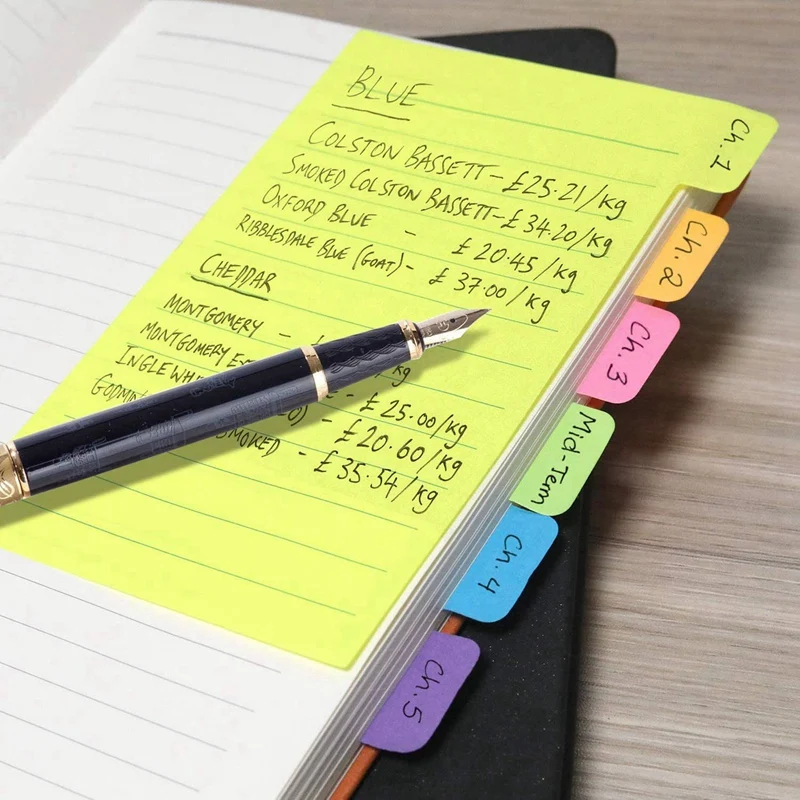 BLUE
COLSTON BASSETT - £25.21/kg
SMOKED COLSTON BASSETT - £34.20/kg
OXFORD BLUE - £20.45/kg
RIBBLESDALE BLUE (GOAT) - £37.00/kg
CHEDDAR
MONTGOMERY - kg
MONTGOMERY - £25.00/kg
- £20.60/kg
SMOKED - £35.54/kg
Ch. 1
Ch. 2
Ch. 3
Mid-Term
Ch. 4
Ch. 5